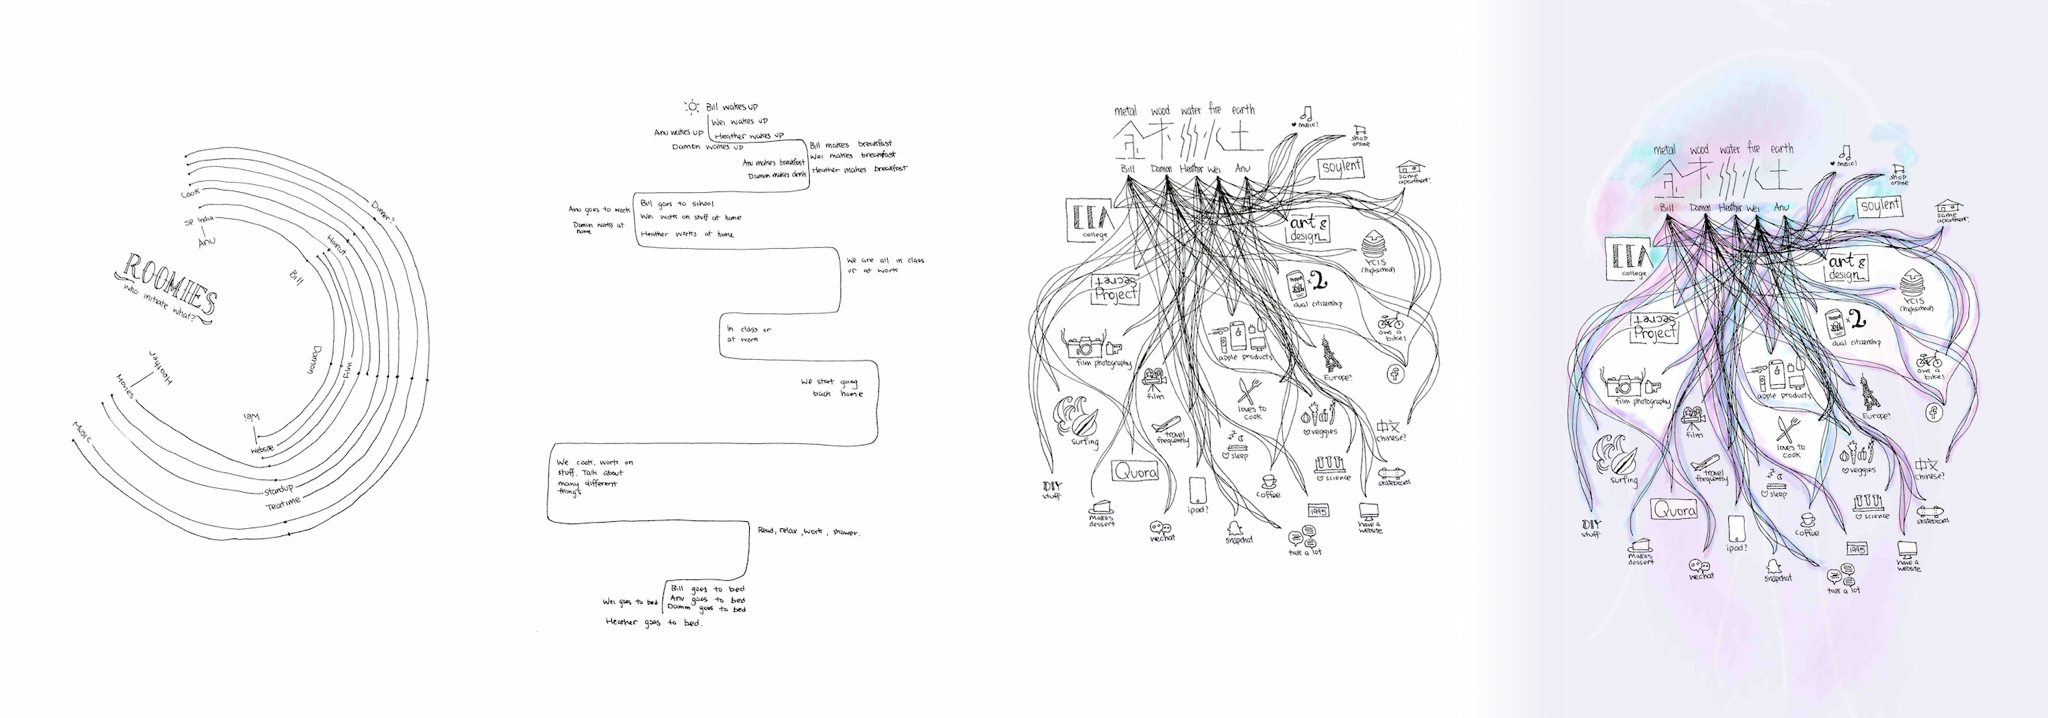 Cook
SP India
Anu
Dinner?
Haircut
Bill
ROOMIES
Who initiate what?
Damon
Film
Heather
Movies
Wei
Website
Music
Startup
Teatime
Bill wakes up
Wei wakes up
Anu wakes up
Heather wakes up
Damon wakes up
Bill makes breakfast
Wei makes breakfast
Anu makes breakfast
Heather makes breakfast
Damon makes drink
Anu goes to work
Bill goes to school
Wei works on stuff at home
Damon works at
home
Heather works at home
We are all in class
or at work
In class or
at work
We start going
back home
We cook, work on
stuff. Talk about
many different
things
Read, relax, work, shower.
Bill goes to bed
Wei goes to bed
Anu goes to bed
Damon goes to bed
Heather goes to bed.
metal wood water fire earth
金 木 水 火 土
Bill Damon Heather Wei Anu
♥ music!
shop
online
soylent
same
apartment.
CCA
college
art &
design
YCIS
(highschool)
Secret
Project
x2
dual citizenship
own a
bike!
film photography
apple products
Europe?
film
loves to
cook
surfing
travel
frequently
♥ sleep
♥ veggies
中文
chinese?
Quora
♥ science
skateboard
DIY
stuff
makes
dessert
ipad?
coffee
1995
have a
website
wechat
snapchat
talk a lot
metal wood water fire earth
金 木 水 火 土
Bill Damon Heather Wei Anu
♥ music!
shop
online
soylent
same
apartment.
CCA
college
art &
design
YCIS
(highschool)
Secret
Project
x2
dual citizenship
own a
bike!
film photography
apple products
Europe?
film
loves to
cook
surfing
travel
frequently
♥ sleep
♥ veggies
中文
chinese?
Quora
♥ science
skateboard
DIY
stuff
makes
dessert
ipad?
coffee
1995
have a
website
wechat
snapchat
talk a lot